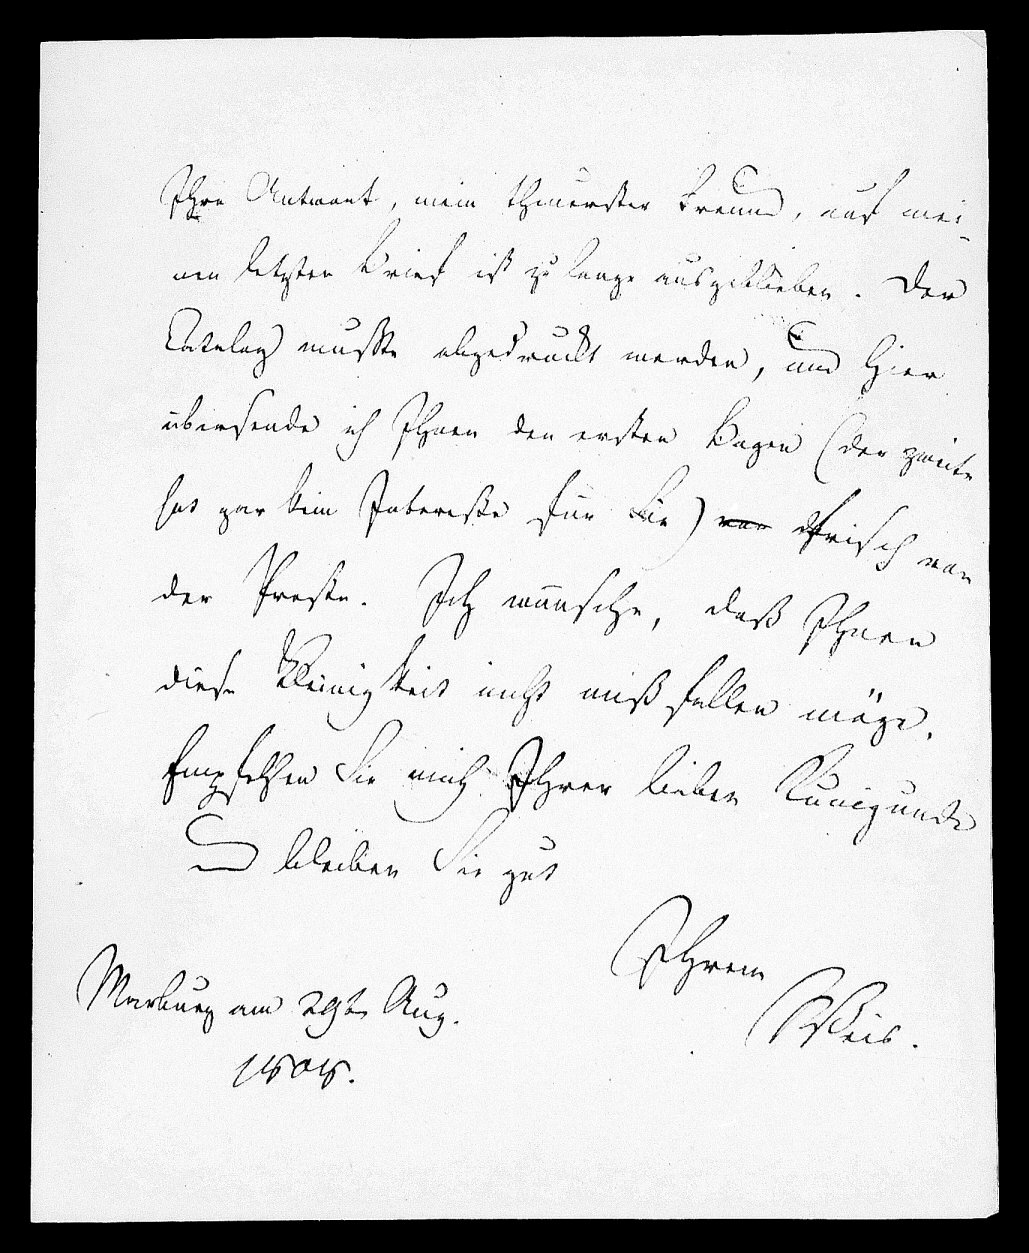 Ihre Antwort, mein theuerster Freund, auf mei-
nen letzten Brief ist zu lange ausgeblieben. Der
Catalog mußte abgedruckt werden, und hier
übersende ich Ihnen den ersten Bogen (der zweite
hat gar kein Interesse für Sie) frisch von
der Presse. Ich wünsche, daß Ihnen
diese Kleinigkeit nicht mißfallen möge.
Empfehlen Sie mich Ihrer lieben Kunigunde
und bleiben Sie gut
Ihrem
Weis.
Marburg am 29ten Aug.
1808.